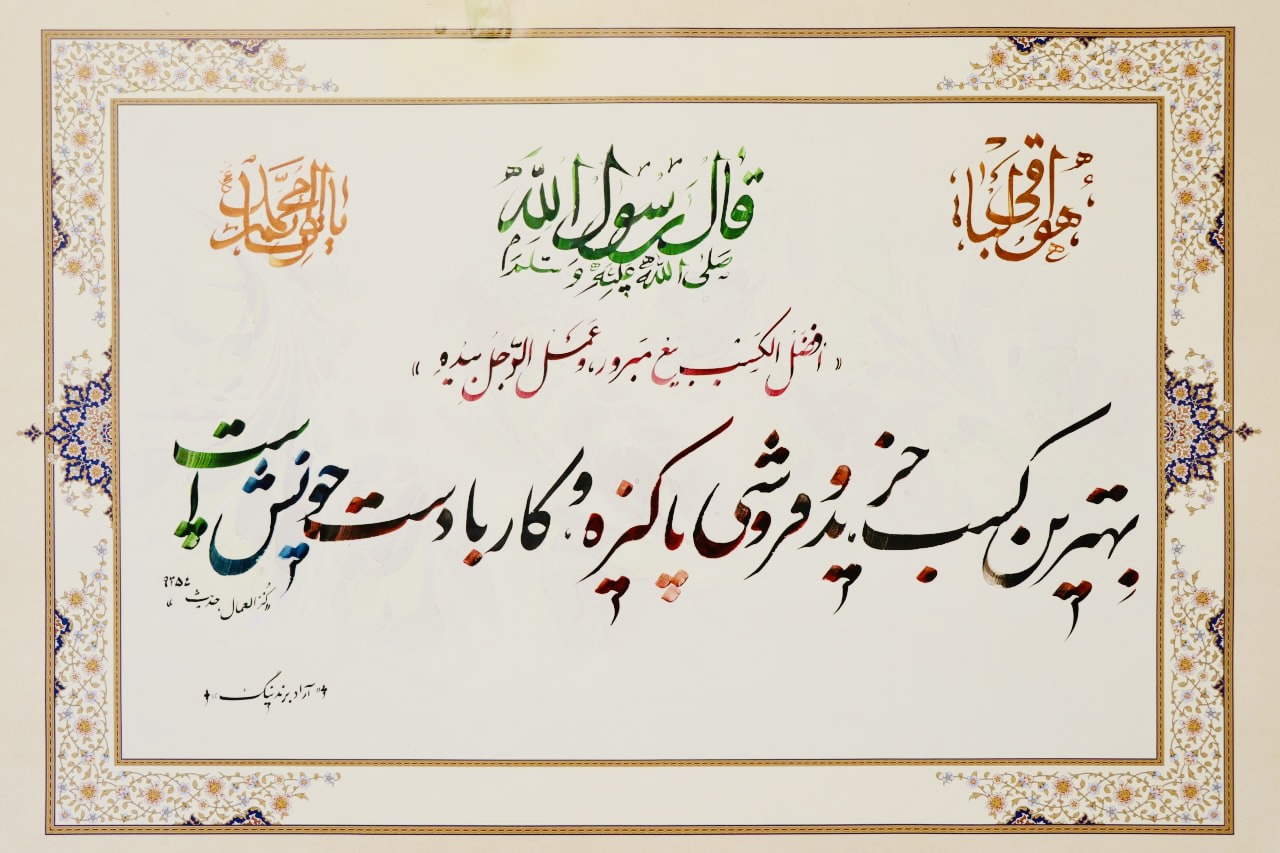 هو الباقی
قال رسول الله
صلی الله علیه وسلم
یا محمد
« أفضل الکسب بیع مبرور، وعمل الرجل بیده »
بهترین کسب خرید و فروشی پاکیزه و کار با دست خویش است
« کنز العمال حدیث ۹۳۵۷ »
« آراد برندینگ »